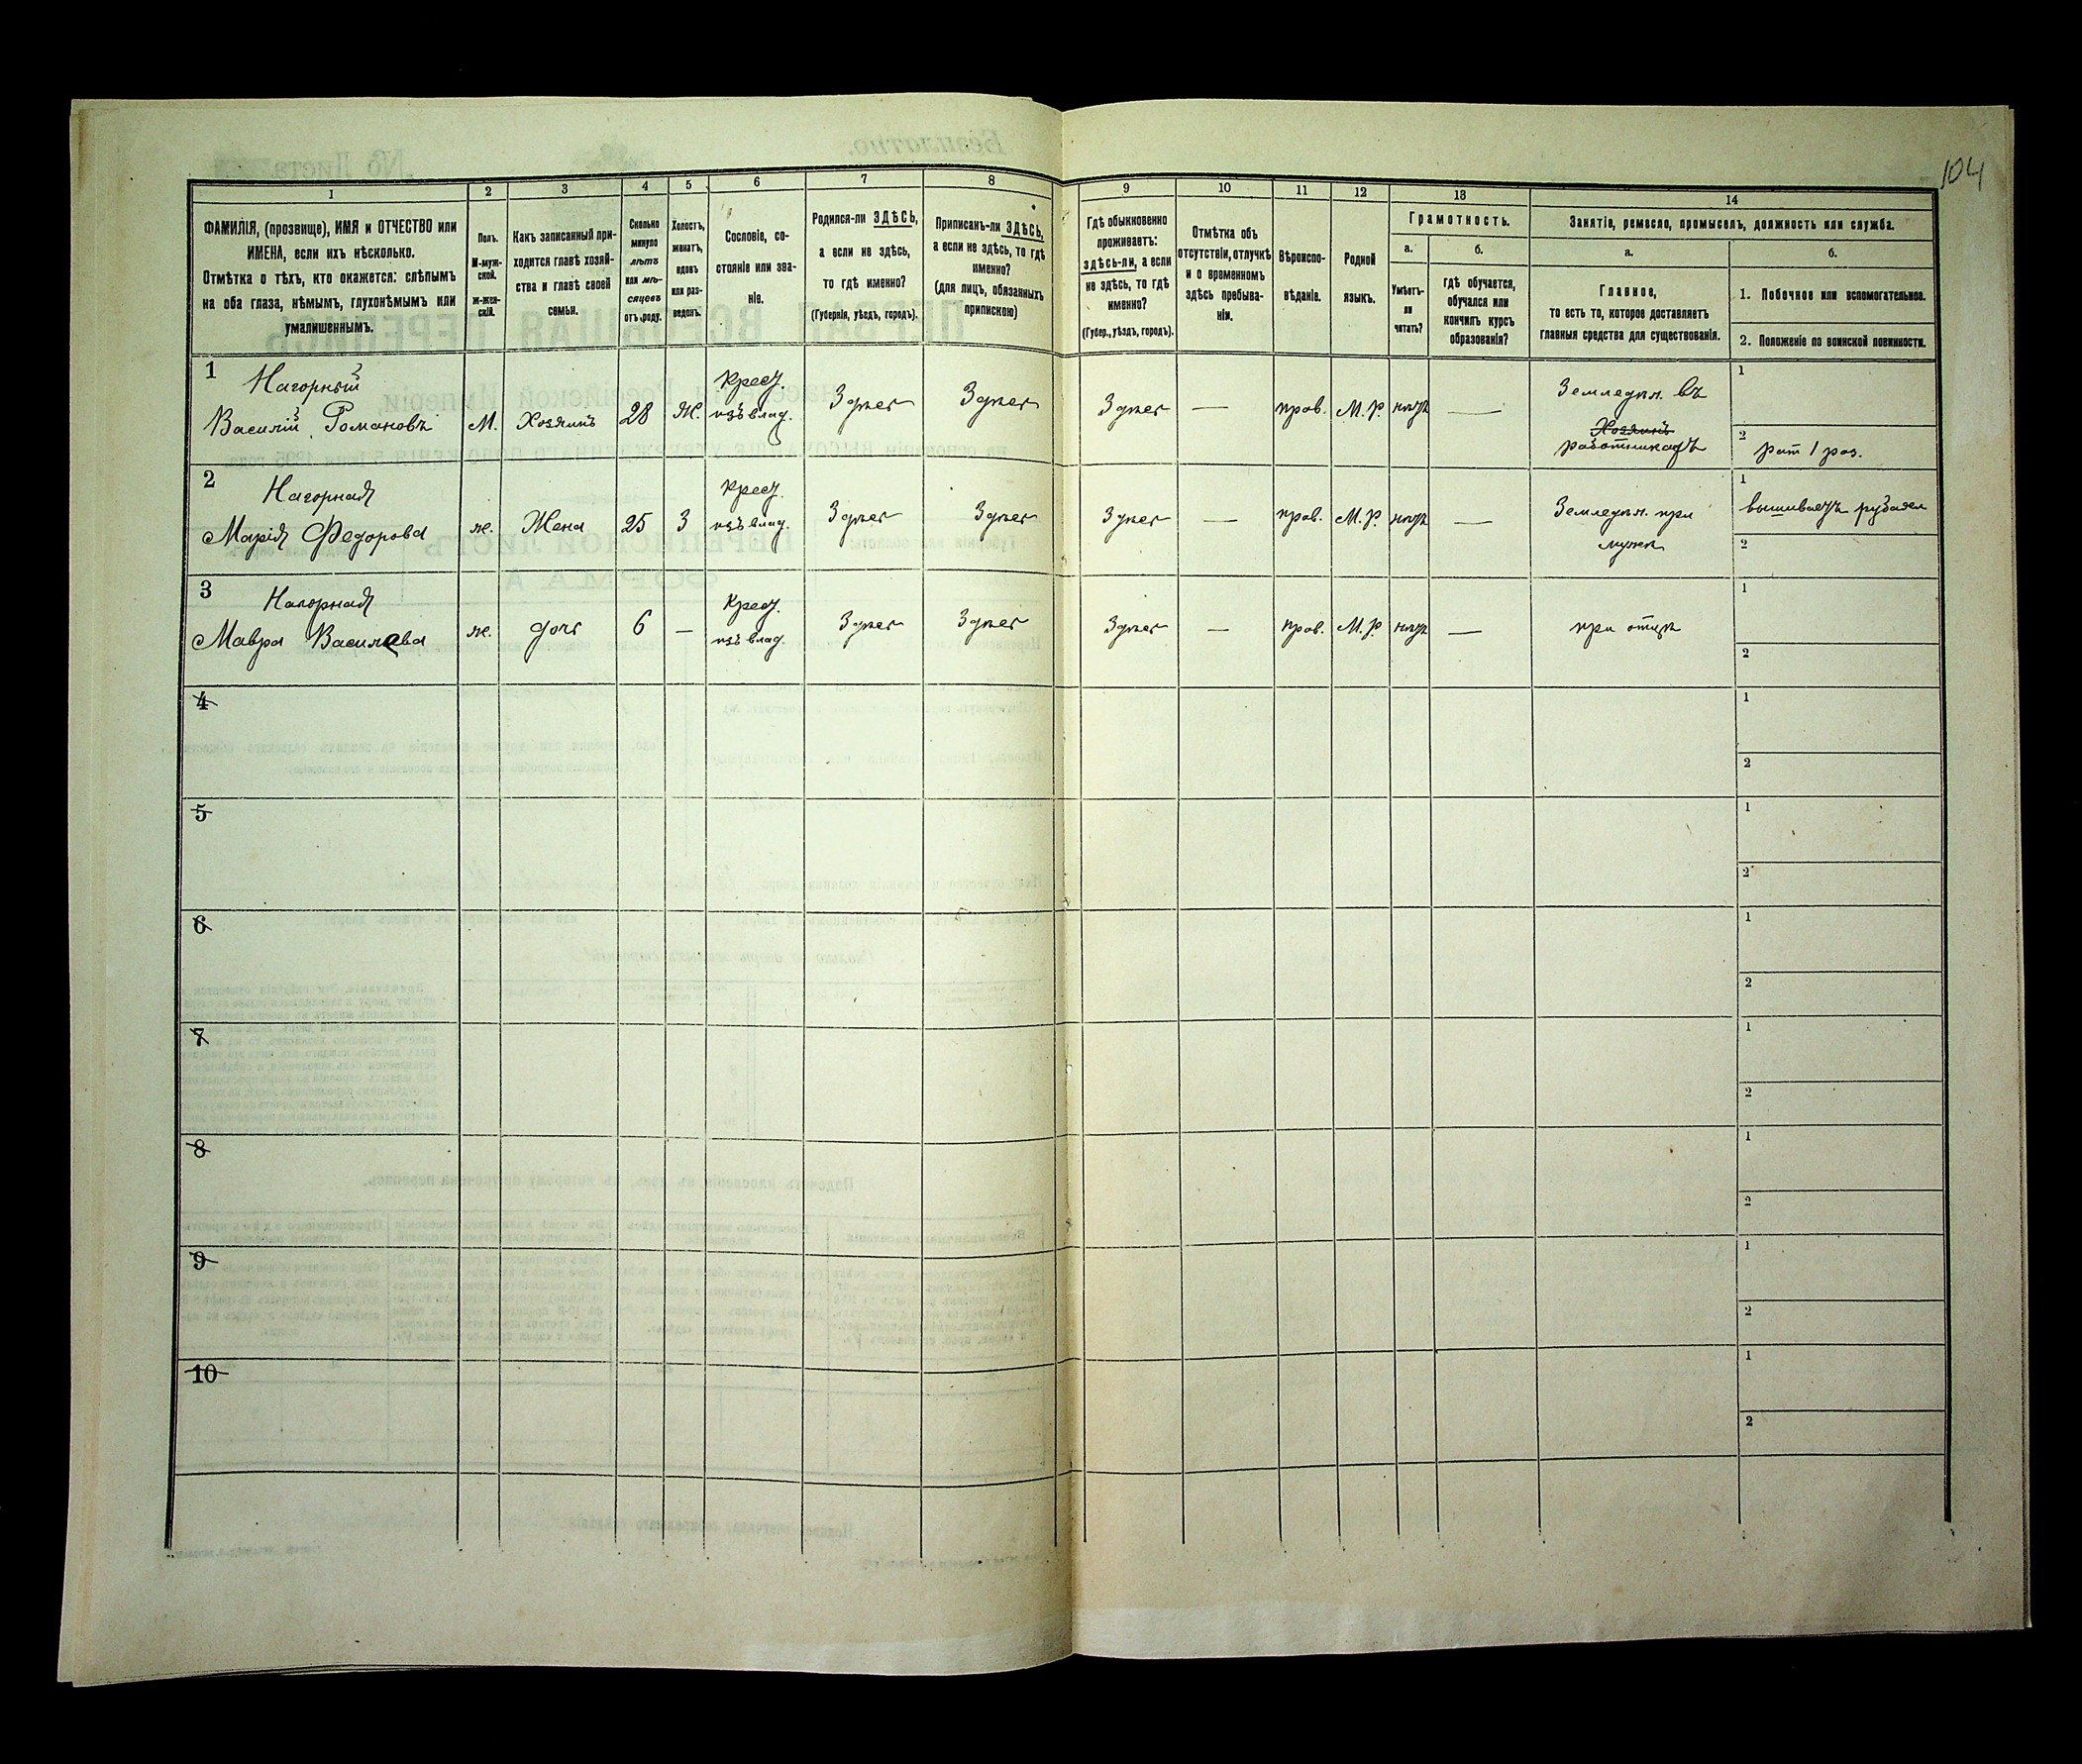 104
1 2 3 4 5 6 7 8 9 10 11 12 13 14
ФАМИЛІЯ, (прозвище), ИМЯ и ОТЧЕСТВО или
ИМЕНА, если ихъ нѣсколько.
Отмѣтка о тѣхъ, кто окажется: слѣпымъ
на оба глаза, нѣмымъ, глухонѣмымъ или
умалишеннымъ.
Полъ.
М-муж-
ской.
ж-жен-
скій.
Какъ записанный при-
ходится главѣ хозяй-
ства и главѣ своей
семьи.
Сколько
минуло
лѣтъ
или мѣ-
сяцевъ
отъ роду.
Холостъ,
женатъ,
вдовъ
или раз-
веденъ.
Сословіе, со-
стояніе или зва-
ніе.
Родился-ли ЗДѢСЬ,
а если не здѣсь,
то гдѣ именно?
(Губернія, уѣздъ, городъ).
Приписанъ-ли ЗДѢСЬ,
а если не здѣсь, то гдѣ
именно?
(для лицъ, обязанныхъ
припискою)
Гдѣ обыкновенно
проживаетъ:
здѣсь-ли, а если
не здѣсь, то гдѣ
именно?
(Губер., уѣздъ, городъ).
Отмѣтка объ
отсутствіи, отлучкѣ
и о временномъ
здѣсь пребыва-
ніи.
Вѣроиспо-
вѣданіе.
Родной
языкъ.
Грамотность.
а.
Умѣетъ-
ли
читать?
б.
гдѣ обучается,
обучался или
кончилъ курсъ
образованія?
Занятія, ремесло, промыселъ, должность или служба.
а.
Главное,
то есть то, которое доставляетъ
главныя средства для существованія.
б.
1. Побочное или вспомогательное.
2. Положеніе по воинской повинности.
1 Нагорный
Василій Романовъ
М.
Хозяинъ
28
Ж.
Крест.
изъ влад.
Здѣсь
Здѣсь
Здѣсь
—
прав.
М. р.
нѣтъ
—
Земледѣл. въ
Хозяинъ
работникахъ
1
2 рат 1 раз.
2 Нагорная
Марія Федорова
ж.
Жена
25
З
Крест.
изъ влад.
Здѣсь
Здѣсь
Здѣсь
—
прав.
М. р.
нѣтъ
—
Земледѣл. при
мужѣ
1 вышиваетъ
2
3 Нагорная
Мавра Васильева
ж.
дочь
6
—
Крест.
изъ влад.
Здѣсь
Здѣсь
Здѣсь
—
прав.
М. р.
нѣтъ
—
при отцѣ
1
2
4
1
2
5
1
2
6
1
2
7
1
2
8
1
2
9
1
2
10
1
2